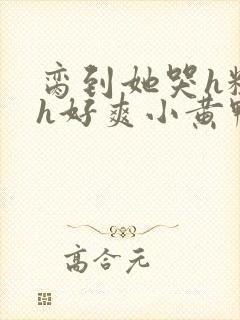 脔到她哭h粗
h好爽小黄鸭
高合元